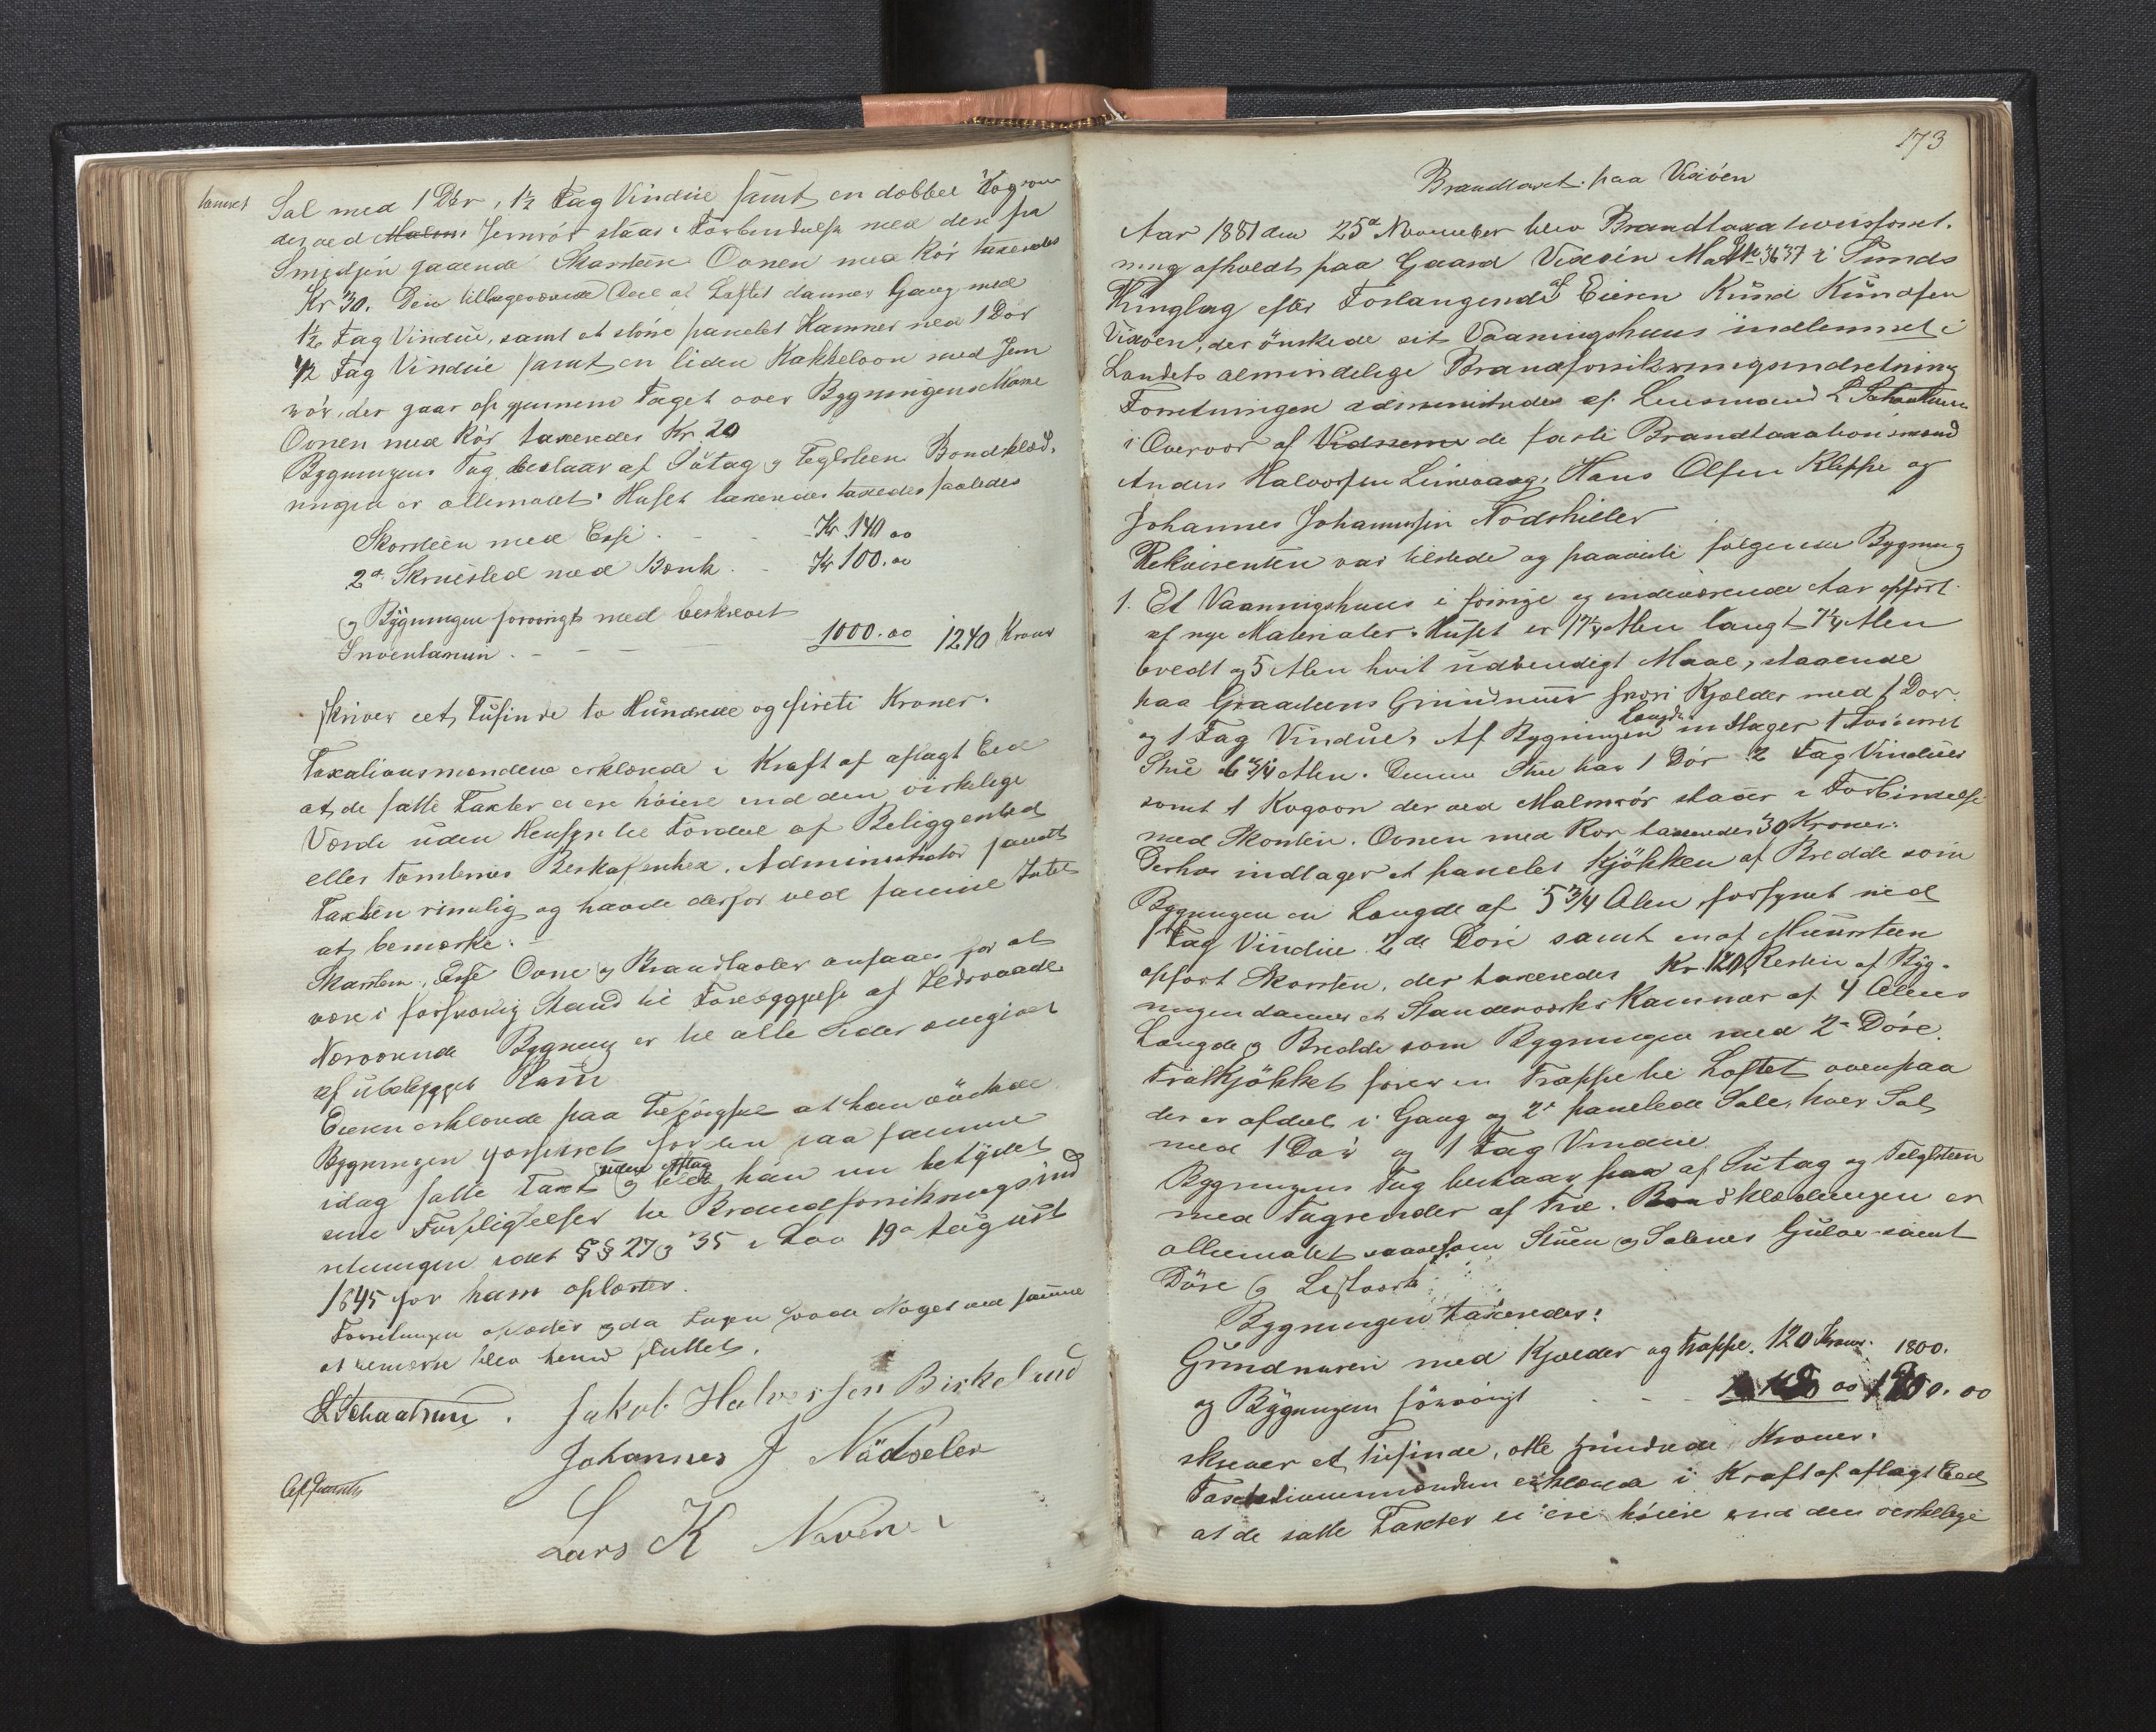 tømret Sal med 1 Dør, 1½ Fag Vindue samt en dobbel Kogovn
der ved Malm Jernrør staar i Forbindelse med den fra
Smidjen gaaende Skorsteen Ovnen med Rør taxeredes
Kr 30. Den tilbageværende Deel af Loftet danner Gang med
1½ Fag Vindue, samt et større panelet Kammer med 1 Dør
1½ Fag Vindue samt en liden Kakkelovn med Jern
rør, der gaar op gjennem Taget over Bygningens Møne
Ovnen med Rør taxeredes Kr. 20
Bygningens Tag bestaar af Sutag og Teglsteen Bordklæd-
ningen er ollemalet. Huset taxeredes saaledes
Skorsteen med Esse . - - Kr 140 00
2de Skruested med Bænk . - Kr 100.00
og Bygningen forøvrigt med beskrevet
Inventarium . - - - - 1000.00 1240 Kroner
skriver eet Tusinde to Hundrede og fireti Kroner.
Taxationsmændene erklærede i Kraft af aflagt Eed
at de satte Taxter ei ere høiere end den virkelige
Værdi uden Hensyn til Fordeel af Beliggenhed
eller Tomternes Beskaffenhed. Administrator fandt
Taxten rimelig og havde derfor ved samme Intet
at bemærke. -
Skorsteen, Esse Ovne og Brandtavler ansaaes for at
være i forsvarlig Stand til Forebyggelse af Ildsvaade
Nærværende Bygning er til alle Sider omgivet
af ubebygget Rum
Eieren erklærede paa Tilspørgsel at han ønskede
Bygningen forsikret for den paa samme
idag satte Taxt uden Aftag og blev han nu betydet
sine Forpligtelser til Brandforsikringsind
retningen samt §§ 27 og 35 i Lov 19de August
1845 for ham oplæstes.
Forretningen oplæstes og da Ingen havde Noget ved samme
at bemærke blev hermed sluttet.
L Schaathun. Jakob Halversen Birkelund
Johannes J Nådseler
Lars K
173
Brandtaxt paa Vixøen
Aar 1881 den 25de November blev Brandtaxationsforret-
ning afholdt paa Gaard Vixøen Matr. No 36 37 i Sunds
Thinglag efter Forlangende af Eieren Knud Knudsen
Vixøen, der ønskede sit Vaaningshuus indlemmet i
Landets almindelige Brandforsikringsindretning
Forretningen administredes af Lensmand L Schaathun
i Overvær af Vidnerne de faste Brandtaxationsmænd
Anders Halvorsen Leirvaag, Hans Olsen Kleppe og
Johannes Johannessen Nodskeller
Rekvirenten var tilstede og paaviste følgende Bygning
1. Et Vaaningshuus i forrige og indeværende Aar opført
af nye Materialer. Huset er 17¼ Alen langt 7¼ Alen
bredt og 5 Alen høit udvendigt Maal, staaende
paa Graasteens Grundmuur hvori Kjælder med 1 Dør
og 1 Fag Vindue. Af Bygningens Længde indtager 1 tømret
Stue 6¾ Alen. Denne Stue har 1 Dør 2 Fag Vinduer
samt 1 Kogovn der ved Malmrør staaer i Forbindelse
med Skorsten. Ovnen med Rør taxeredes 30 Kroner.
Derhos indtager et panelet Kjøkken af Bredde som
Bygningen en Længde af 5¾ Alen, forsynet med
1 Fag Vindue 2de Døre samt en af Muursteen
opført Skorsten, der taxeredes Kr. 120 Resten af Byg-
ningen danner et Standerværks Kammer af 4 Alens
Længde og Bredde som Bygningen med 2de Døre.
Fra Kjøkket fører en Trappe til Loftet ovenpaa
der er afdeelt i Gang og 2de panelede Sale, hver Sal
med 1 Dør og 1 Fag Vindue
Bygningens Tag bestaar paa af Sutag og Teglsteen
med Tagrender af Træ. Bordklædningen er
olliemalet saavelsom Stuen og Salenes Gulve samt
Døre og Listværk.
Bygningen taxeredes:
Grundmuren med Kjælder og Trappe. 120 Kroner. 1800.
og Bygningen forøvrigt - - - 00 1800.00
skriver et tusinde, otte hundrede Kroner.
Taxationsmændene erklærede i Kraft af aflagt Eed
at de satte Taxter ei ere høiere end den virkelige